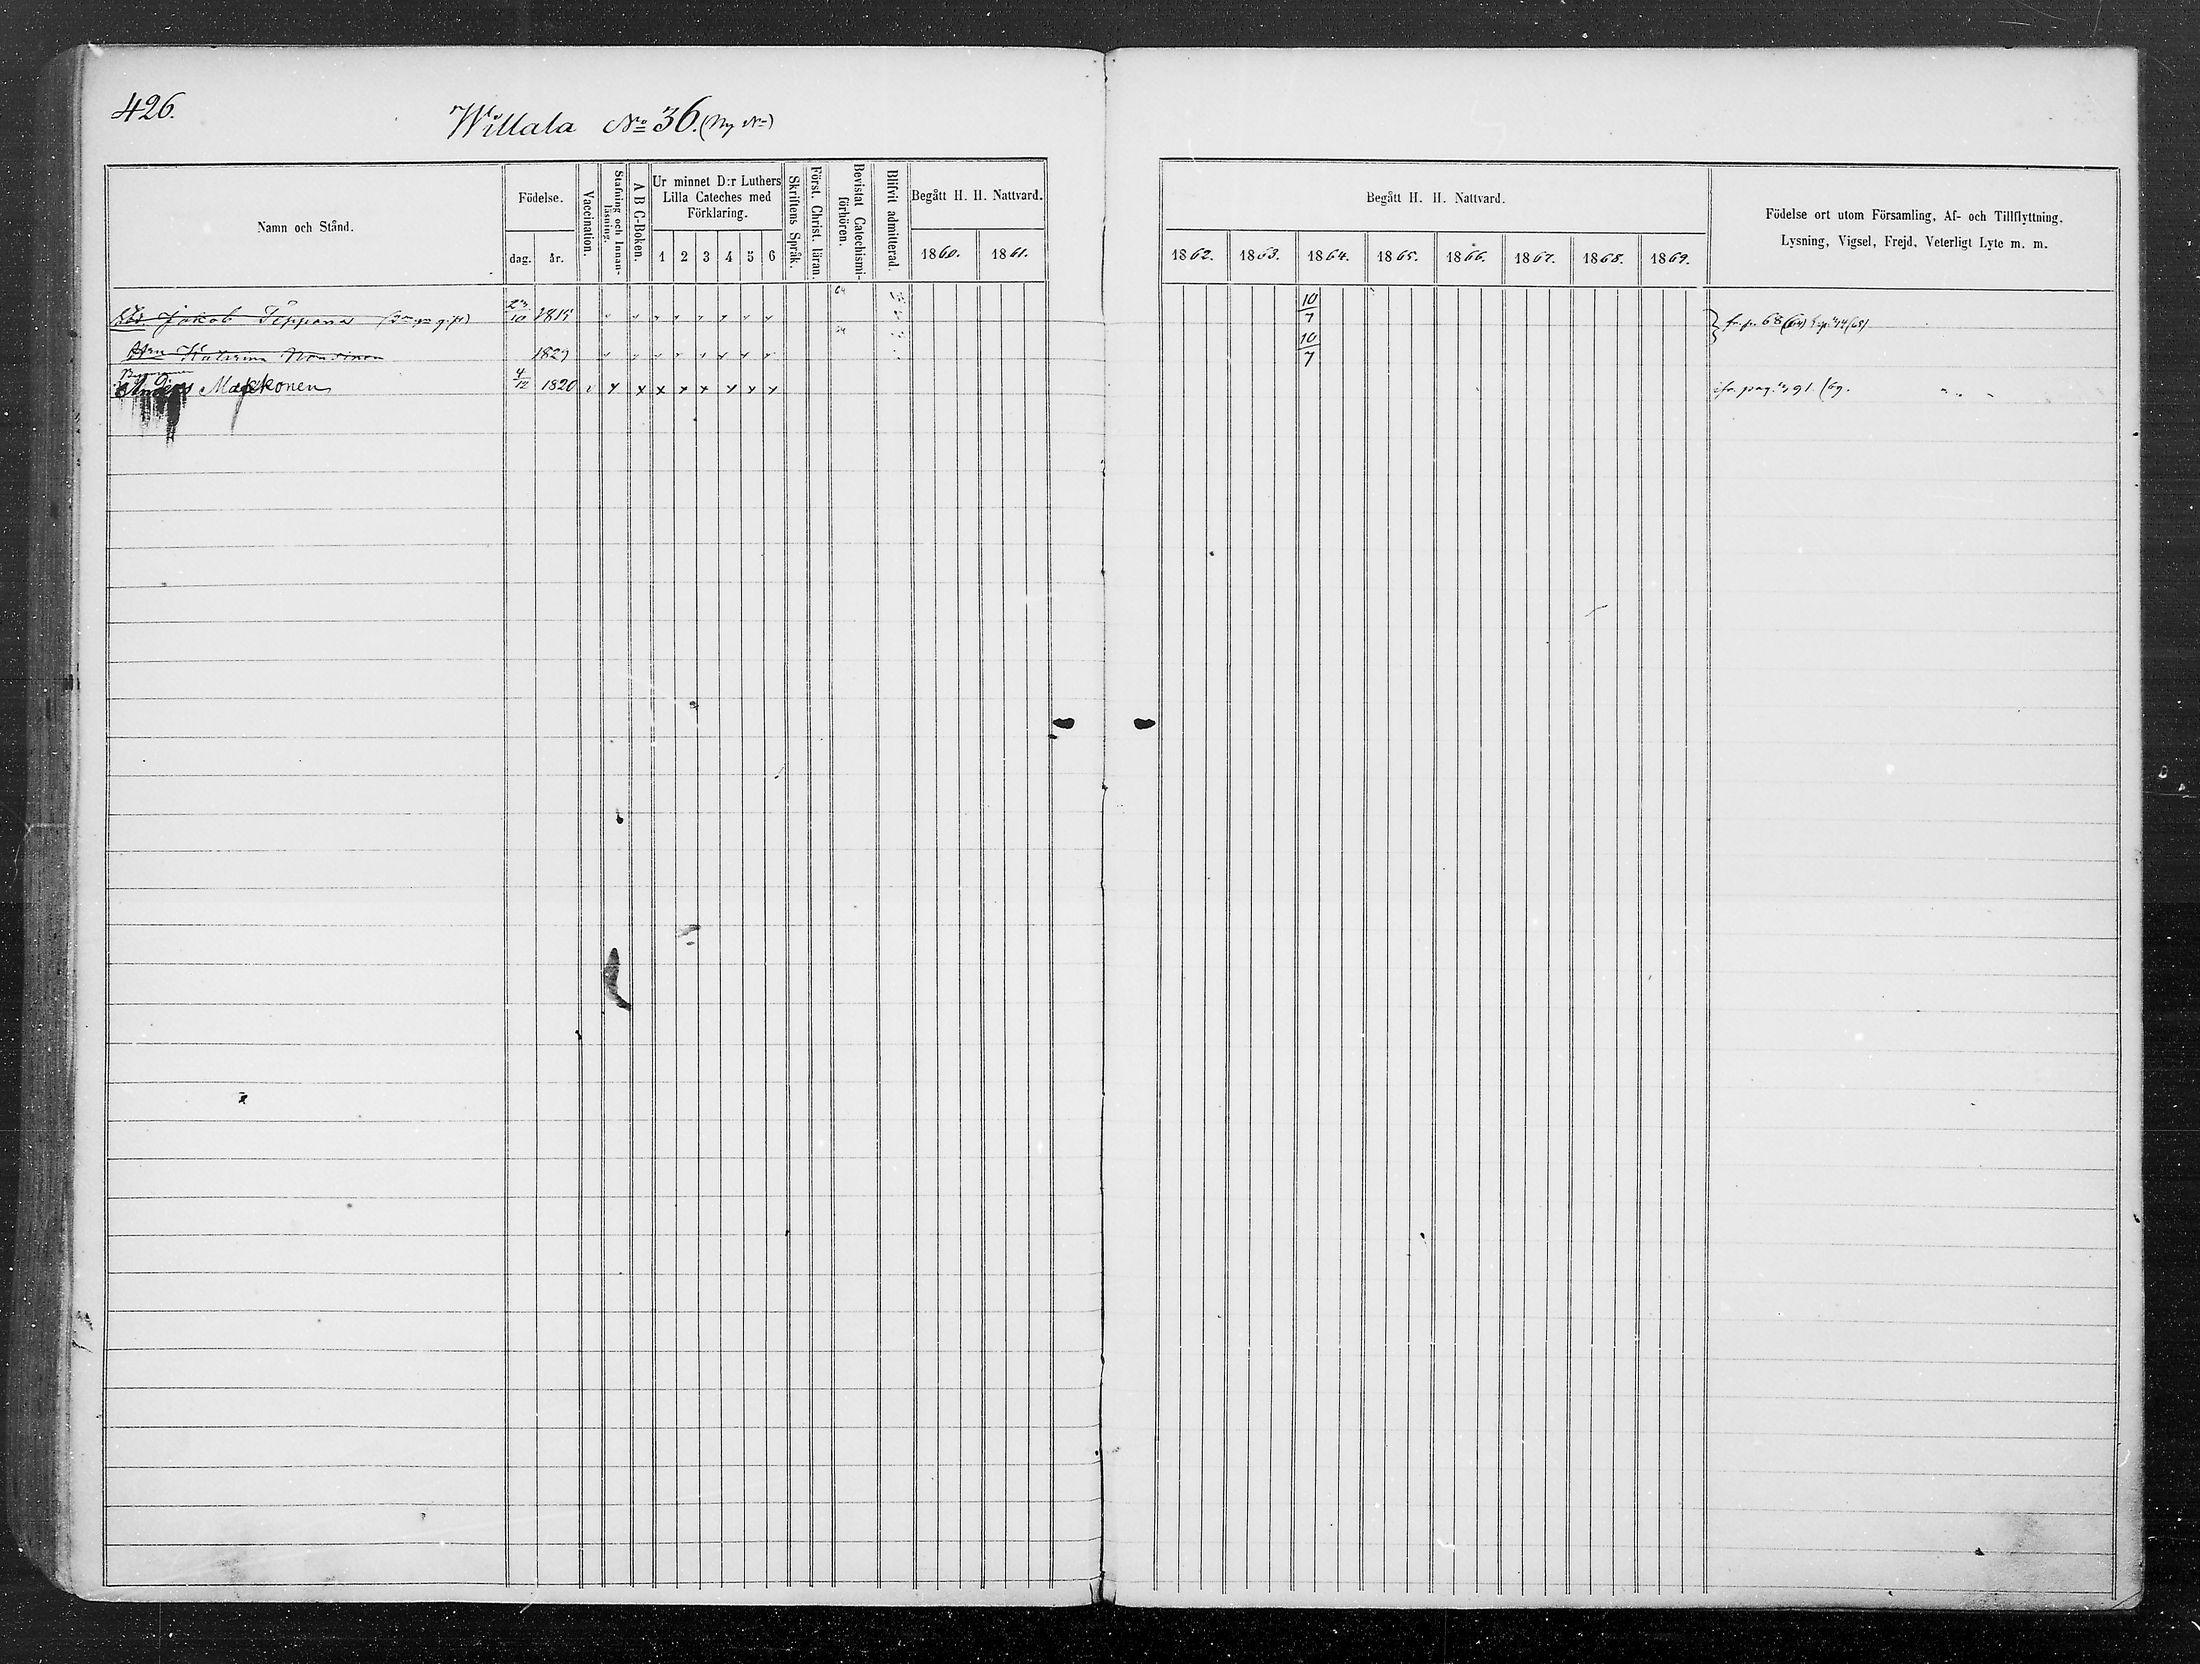 426.
Willala No 36. (Ny No)
Namn och Stånd.
Födelse.
dag. år.
Vaccination.
Stafning och Innan-läsning.
A B C-Boken.
Ur minnet D:r Luthers
Lilla Cateches med
Förklaring.
1 2 3 4 5 6
Skriftens Språk.
Först. Christ. läran.
Bevistat Catechismi-förhören.
Blifvit admitterad.
Begått H. H. Nattvard.
1860. 1861.
Begått H. H. Nattvard.
1862. 1863. 1864. 1865. 1866. 1867. 1868. 1869.
Födelse ort utom Församling, Af- och Tillflyttning,
Lysning, Vigsel, Frejd, Veterligt Lyte m. m.
Jakob Tepponen 23/10 1815 64 10/7 fr. p. 68 (64)
Hu Katarina 1829 10/7
Anders Makkonen 4/12 1820 v x x x x x x x x pag. 491. /69.